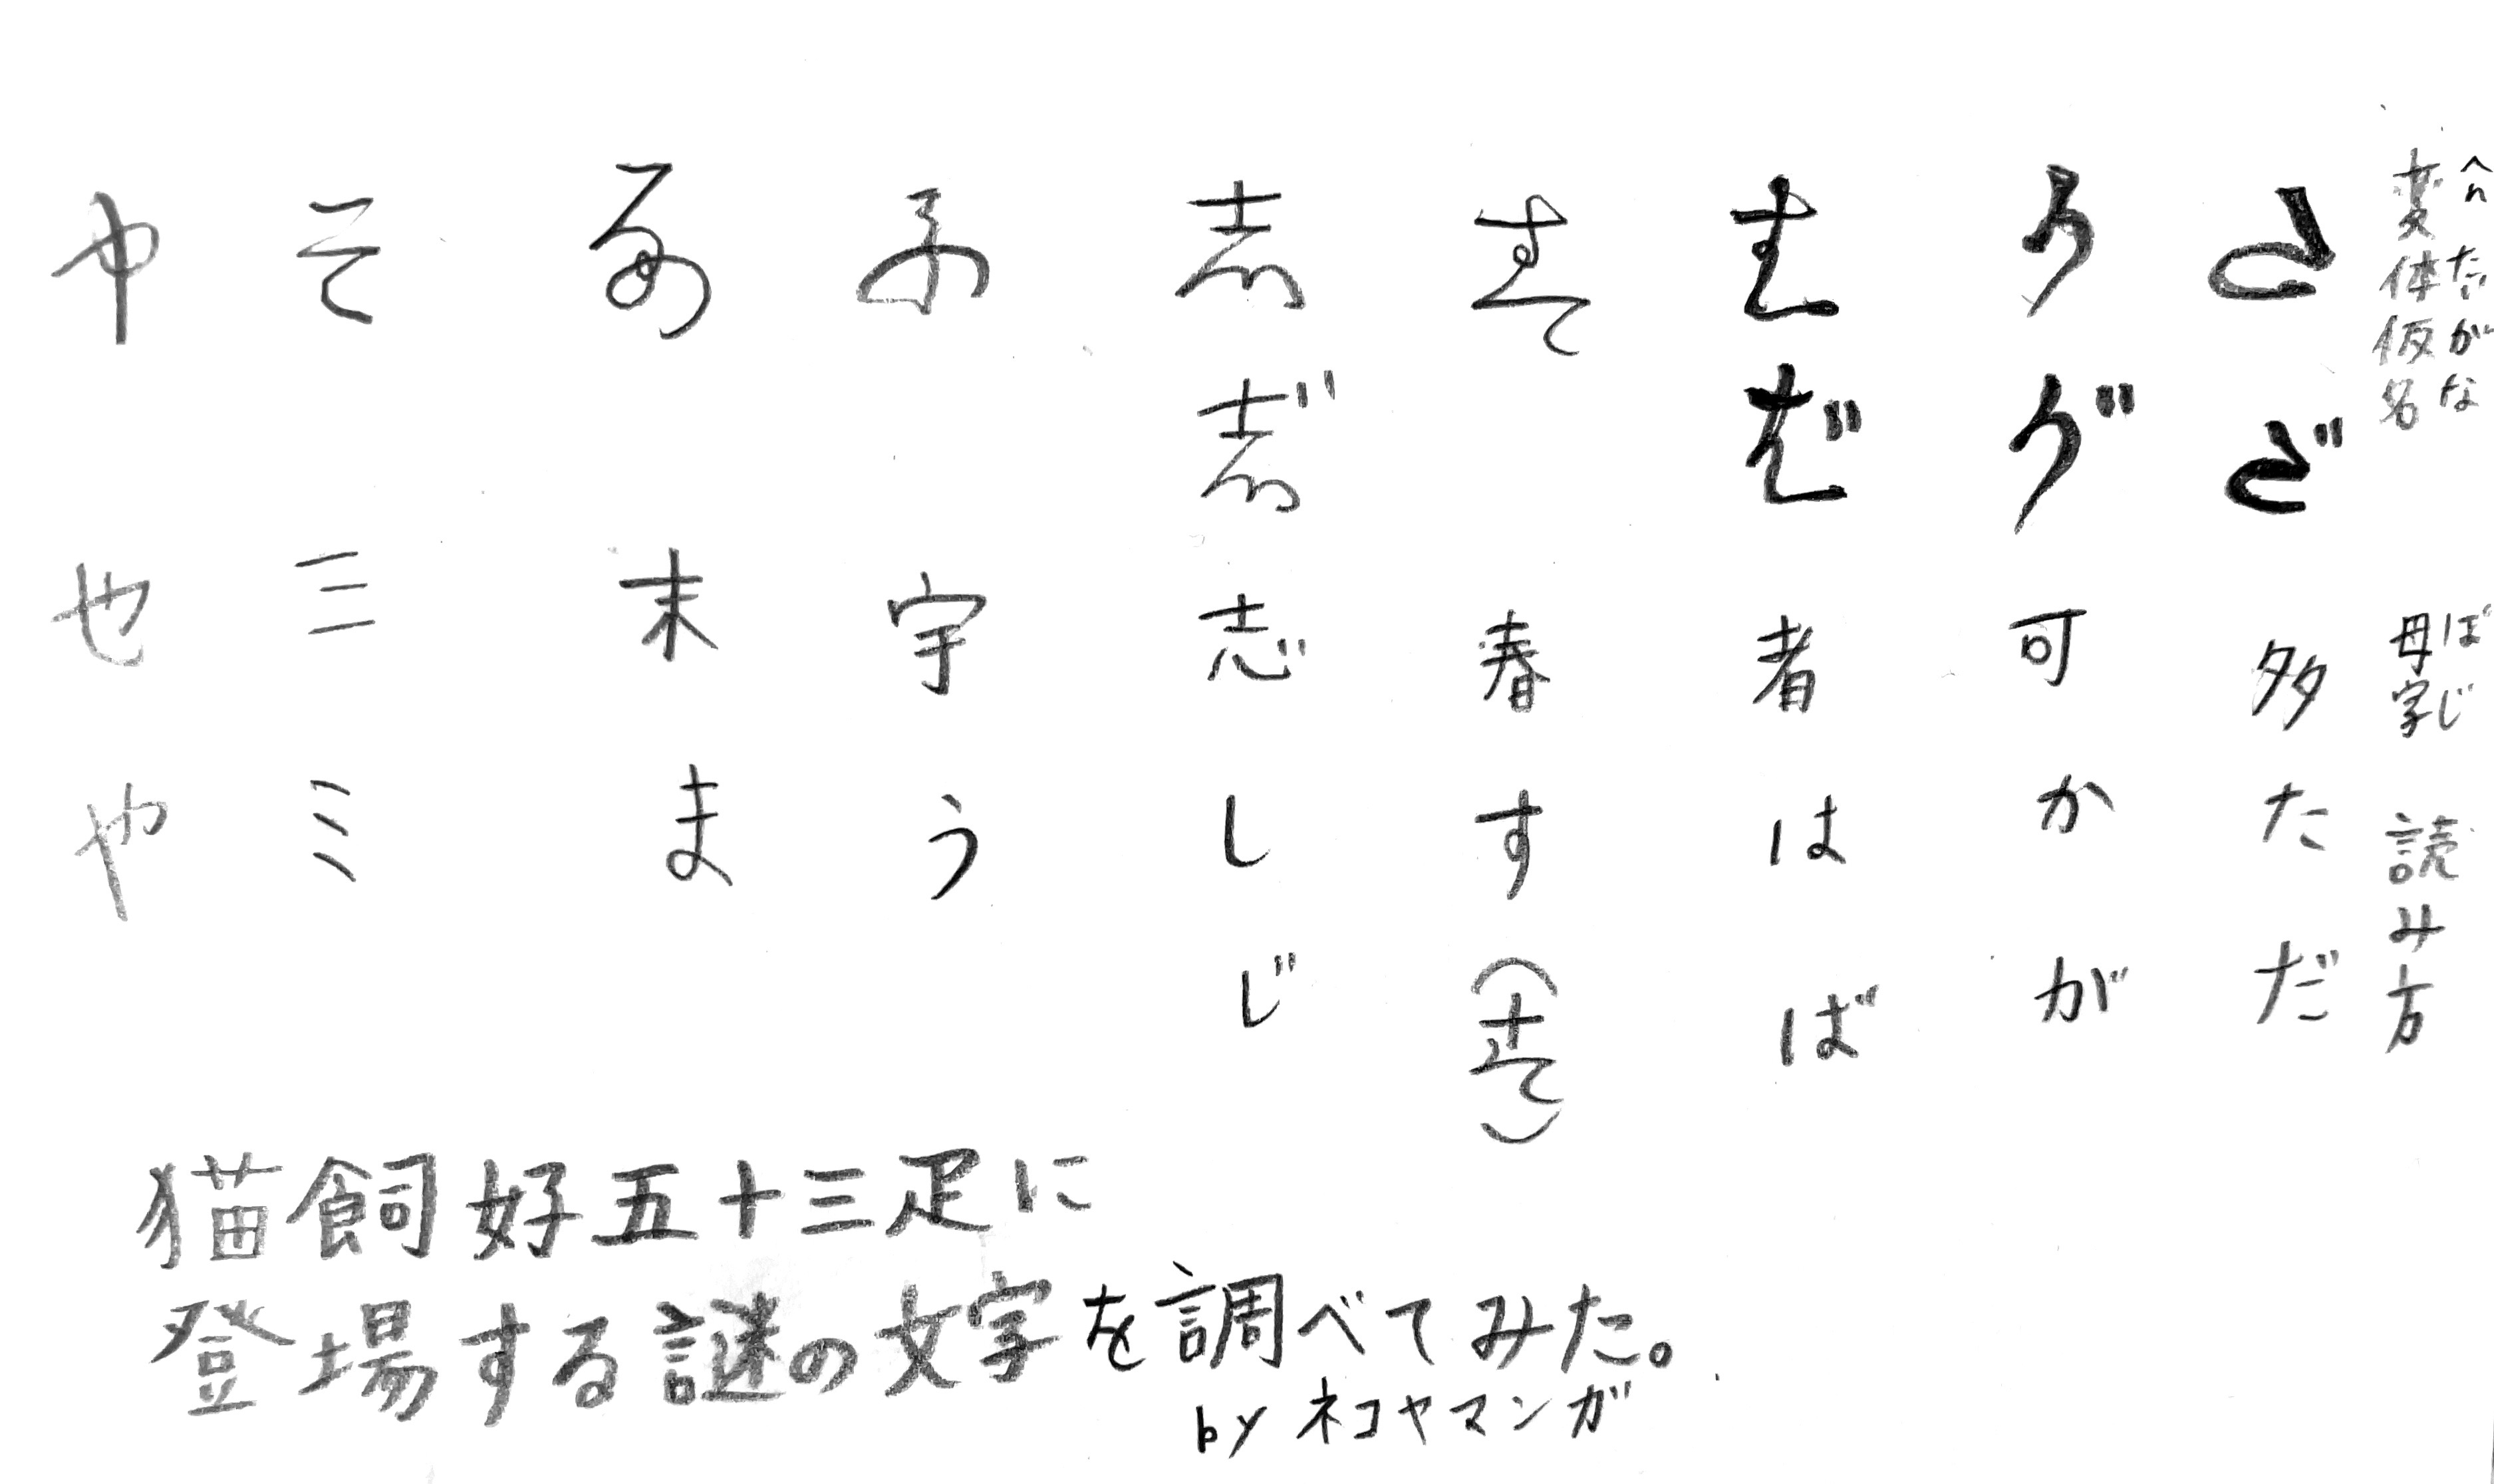 変体仮名 母字 読み方
へん たいがな ぼじ
𛁠 𛁠゙ 多 た だ
𛀙 𛀙゙ 可 か が
𛂞 𛂞゙ 者 は ば
𛁏 春 す
志 志゙ 志 し じ
宇 う
末 ま
三 ミ
也 や
猫飼好五十三疋に
登場する謎の文字を調べてみた。
by ネコヤマンガ